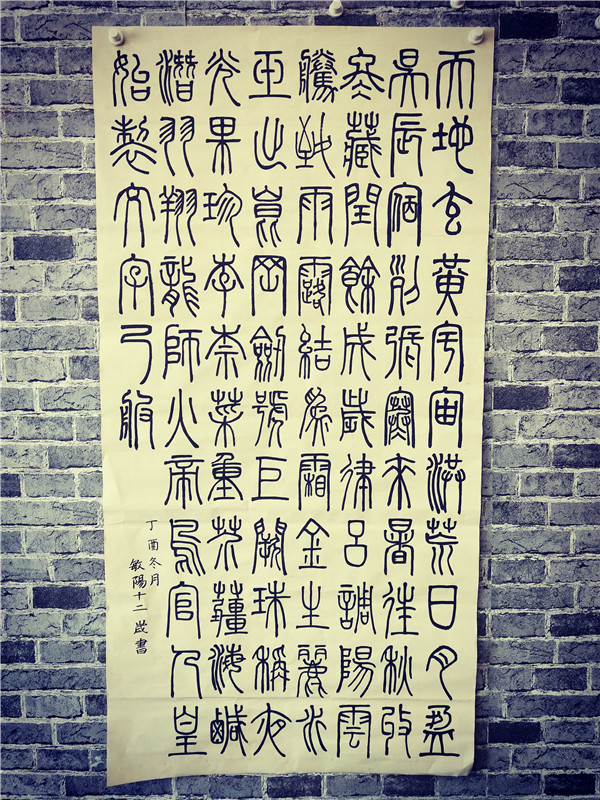 天地玄黃宇宙洪荒日月盈
昃辰宿列張寒來暑往秋收
冬藏閏餘成歲律呂調陽雲
騰致雨露結為霜金生麗水
玉出崑岡劍號巨闕珠稱夜
光果珍李柰菜重芥薑海鹹
潛羽翔龍師火帝鳥官人皇
始製文字乃服
丁酉冬月
敏陽十二歲書